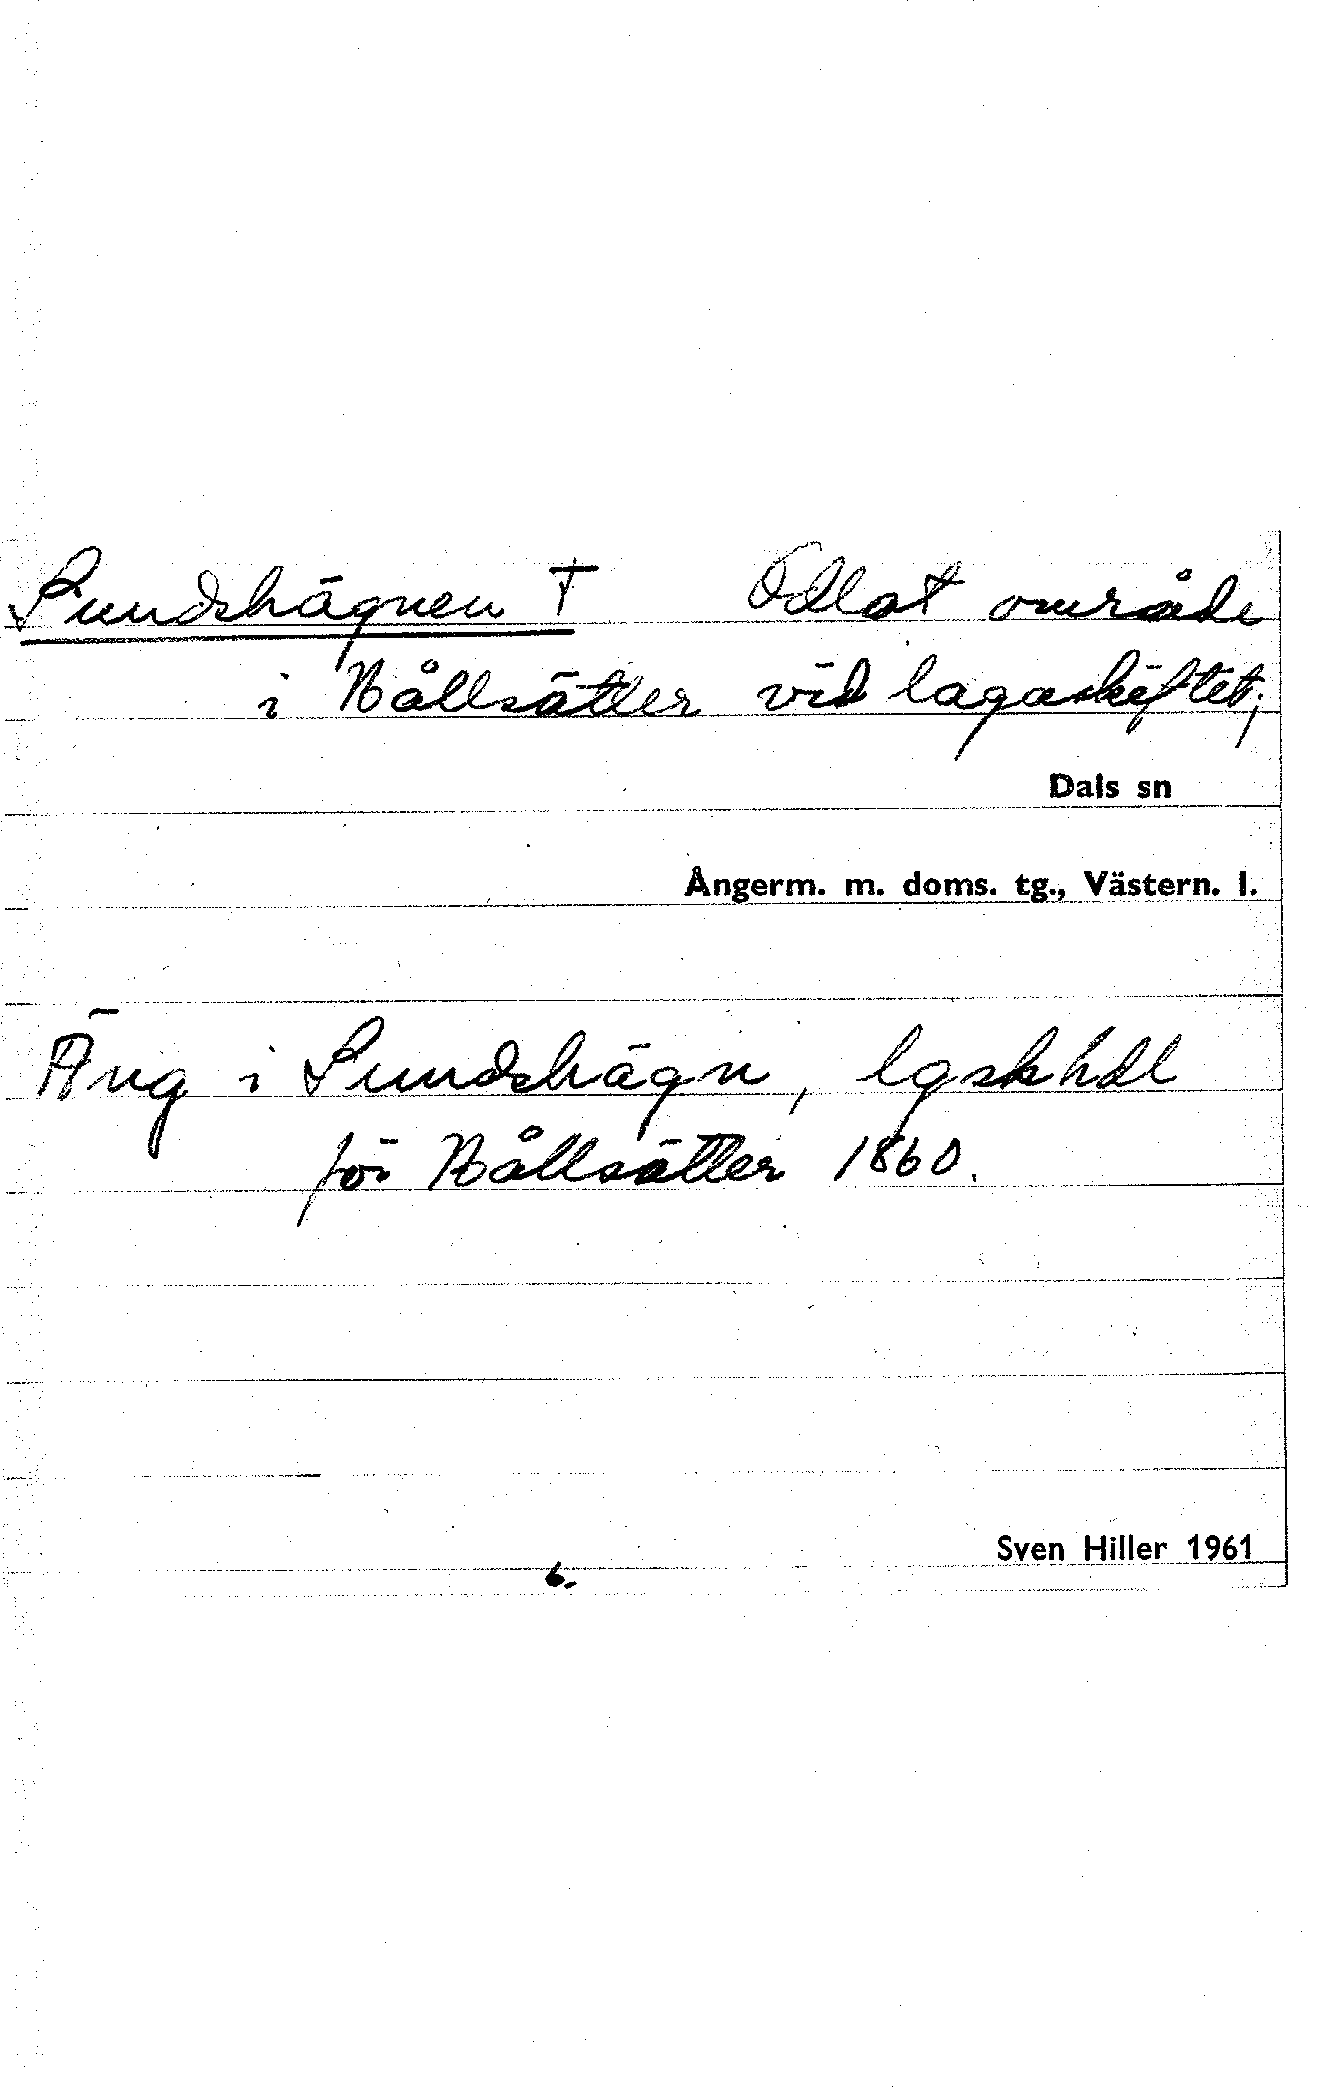 Sundshägnen † Odlat område
i Bållsätter vid lagaskiftet;
Dals sn
Ångerm. m. doms. tg., Västern. l.
Äng i Sundshägn, lgskhdl
för Bållsätter 1860.
Sven Hiller 1961
6.